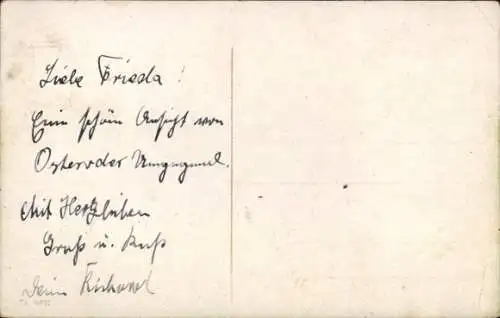 Liebe Frieda!
Eine schöin Ansicht von
Osteroder Umgegend.
Mit Hertzlichen
Gruß u. Kuß
Dein Richard